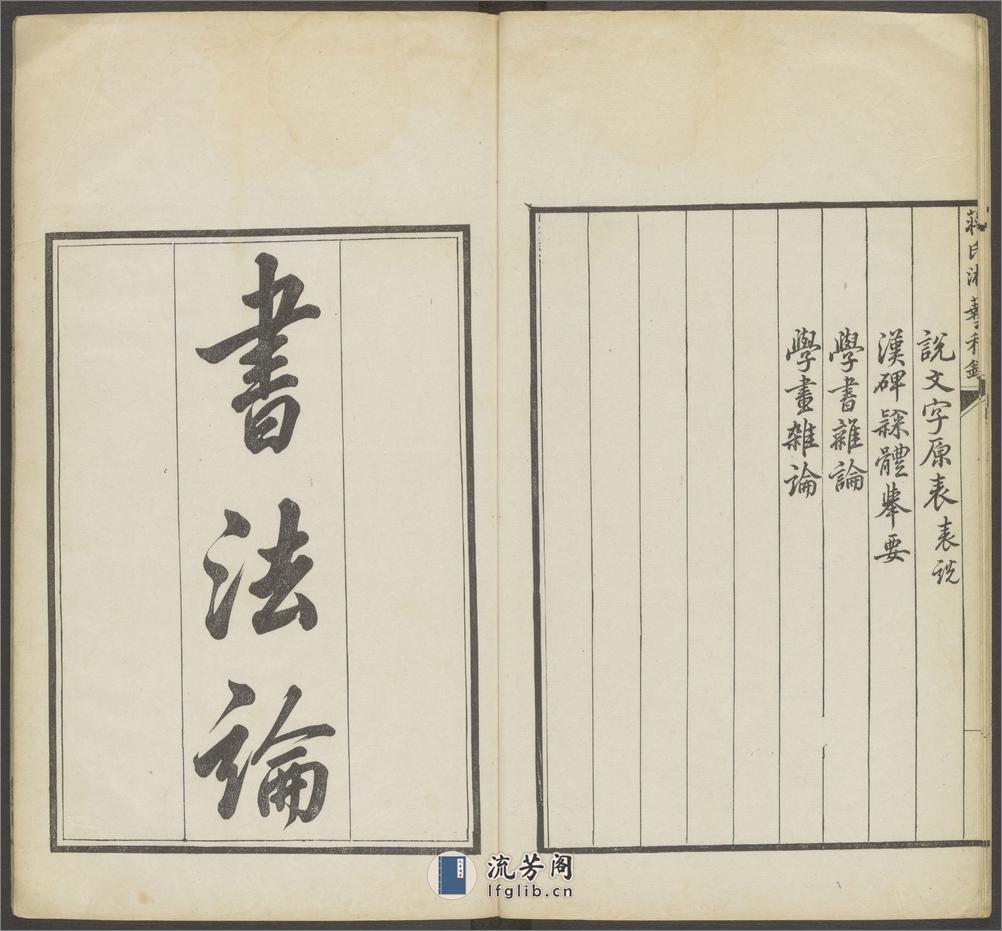 蔣氏游藝秘錄
說文字原表表說
漢碑隸體舉要
學書雜論
學畫雜論
書法論
流芳阁
lfglib.cn